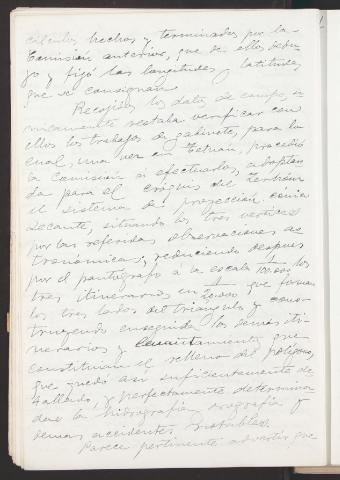 cálculos hechos y terminados por la
Comisión anterior, que de ellos dedu-
jo y fijó las longitudes y latitudes
que se consignan.
Recojidos los datos de campo, ú-
nicamente restaba verificar con
ellos los trabajos de gabinete, para lo
cual, una vez en Tetuán, procedió
la Comisión a efectuarlos, adoptan
do para el cróquis del territorio
el sistema de proyección cónica
secante, situando los tres vertices
por las referidas observaciones as
tronómicas; reduciendo despues
por el pantógrafo a la escala 1/100.000 los
tres itinerarios en 1/20.000 que forman
los tres lados del triangulo y cons-
truyendo enseguida los demas iti-
nerarios y levantamientos que
constituian el relleno del polígono,
que quedó asi suficientemente de
tallado, y perfectamente determina-
da la hidrografía, orografía y
demas accidentes notables.
Parece pertinente advertir que